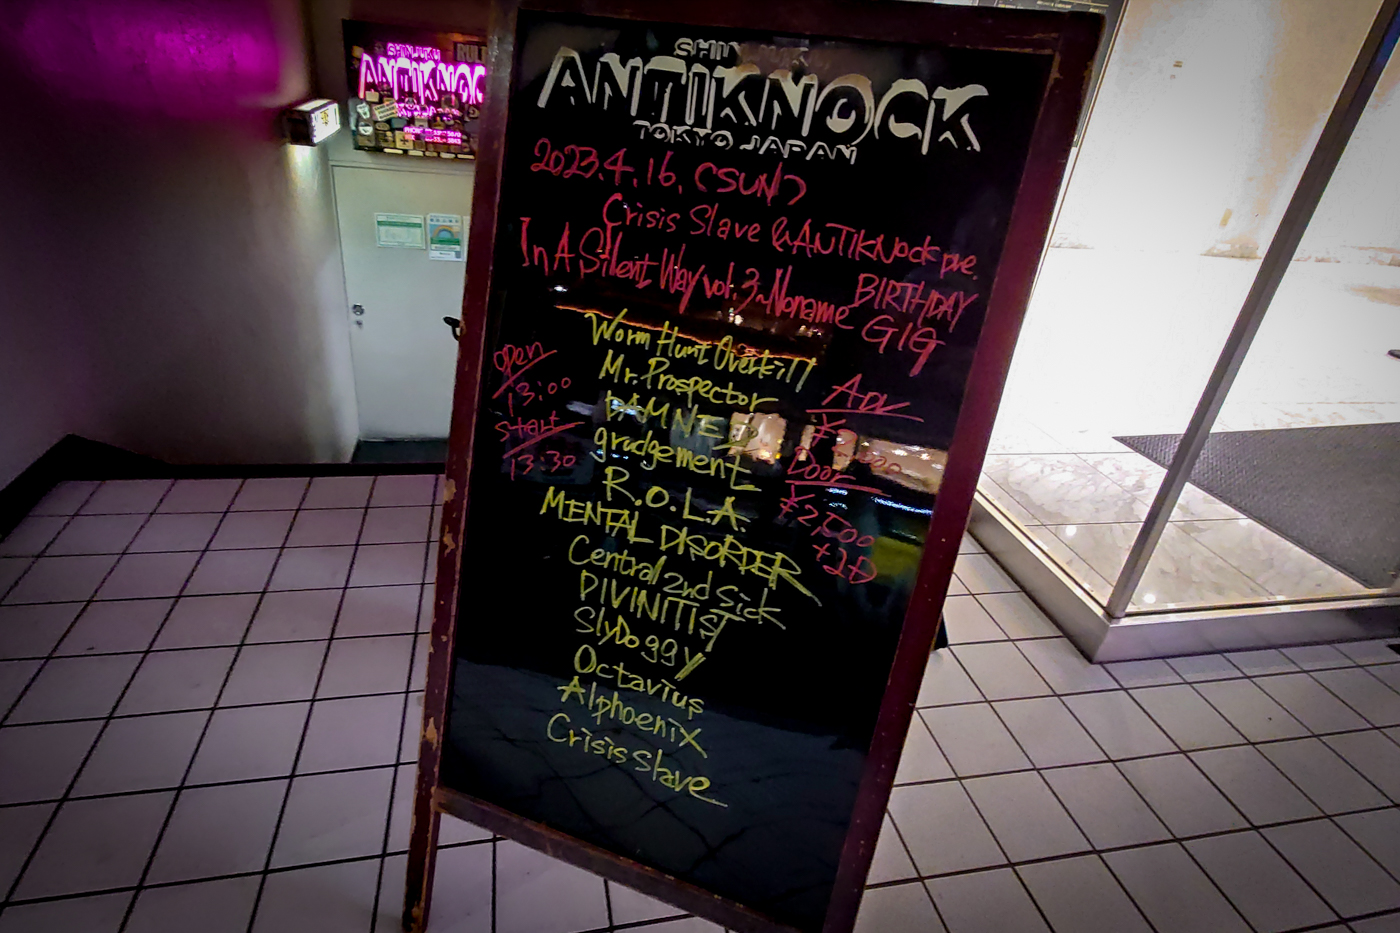 SHINJUKU
ANTIKNOCK
SHIN
ANTIKNOCK
TOKYO JAPAN
2023.4.16. (SUN)
Crisis Slave & ANTIKNOCK pre.
In A Silent Way vol.3 ~Noname BIRTHDAY GIG
open
13:00
start
13:30
Worm Hunt Overkill
Mr. Prospector
DAMNED
grudgement
R.O.L.A.
MENTAL DISORDER
Central 2nd Sick
DIVINITIST
SlyDoggy
Octavius
Alphoenix
Crisis Slave
Adv
Door
¥2,500
+2D